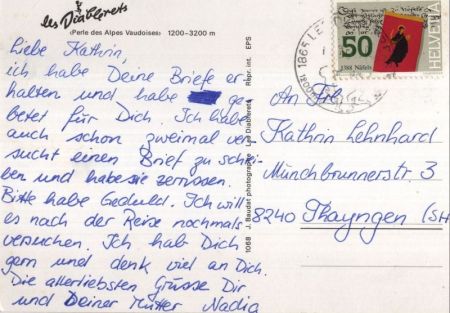 les Diablerets
(Perle des Alpes Vaudoises) 1200–3200 m
Liebe Kathrin,
ich habe Deine Briefe er-
halten und habe ge-
betet für Dich. Ich habe
auch schon zweimal ver-
sucht einen Brief zu schrei-
ben und habe sie zerrissen.
Bitte habe Geduld. Ich will
es nach der Reise nochmals
versuchen. Ich hab Dich
gern und denk viel an Dich.
Die allerliebsten Grüsse Dir
und Deiner Mutter Nadia
1068 J. Baudat photographe Les Diablerets Repr. int. EPS
1865 LES
50
1388 Näfels
HELVETIA
An Frl.
Kathrin Lehnhard
Münchbrunnerstr. 3
8240 Thayngen (SH